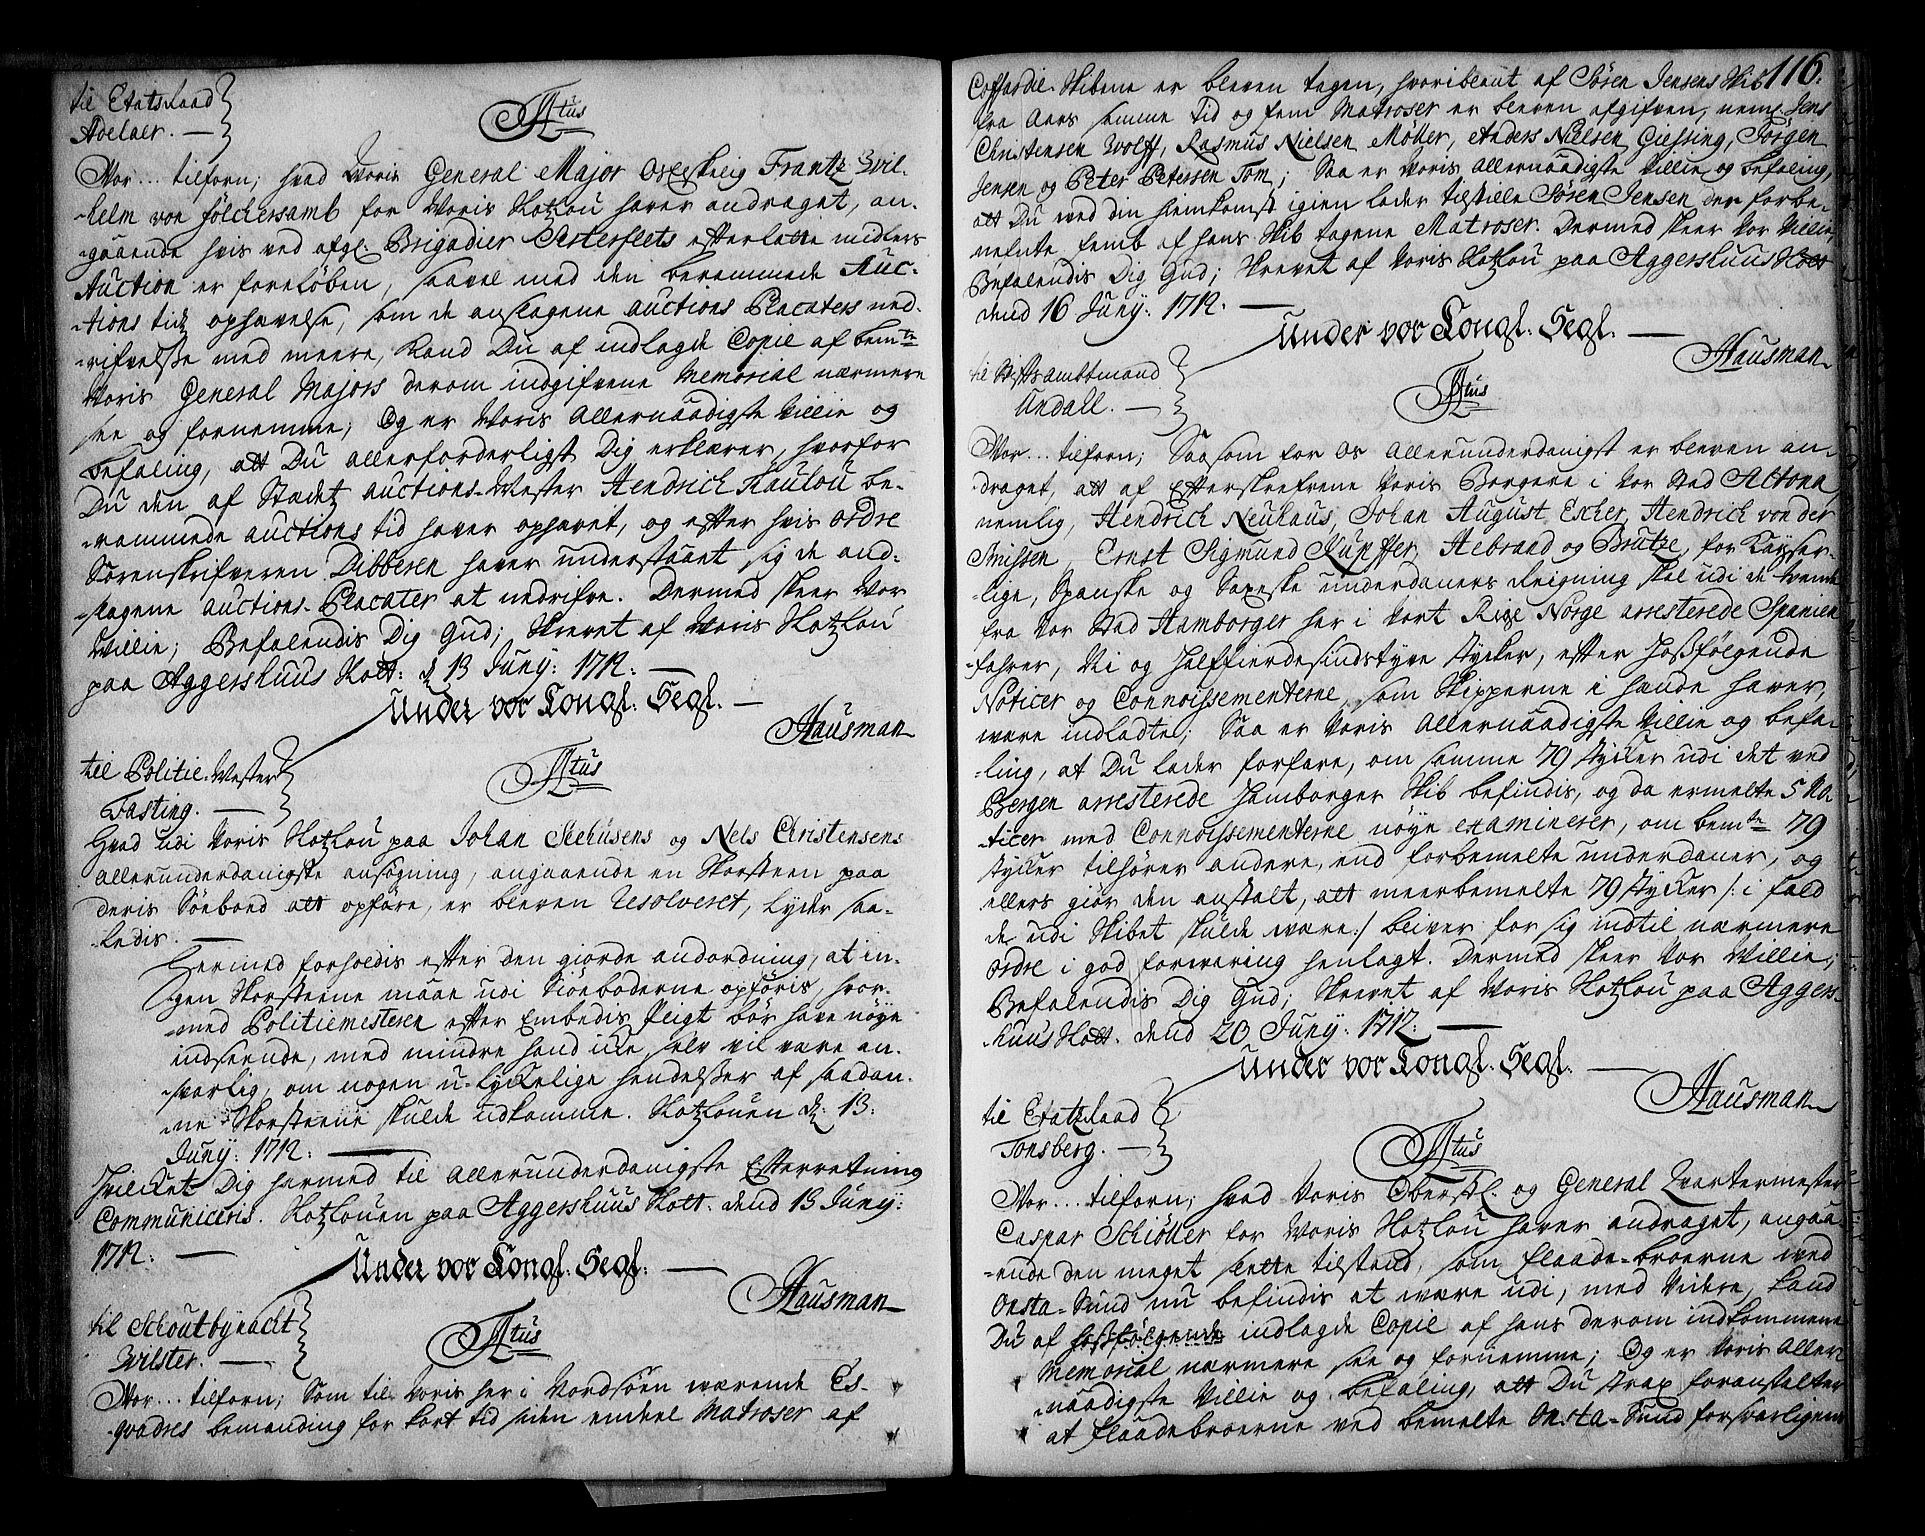 til Etatsraad
Adelaer. —
Ftus
Vor... tilforn; hvad Voris General Major Os Elskelig Frantz Wil-
-helm von Fölckersamb for Voris Slotzlou haver andraget, an-
-gaaende hvis ved afgl. Brigadier Arterfleets efterladte midlers
Auction er foreløben, saavel med den berammede Auc-
-tions tidz ophævelse, som de anslagene auctions Placaters ned-
-rifvelsse med meere, kand Du af indlagde Copie af bemte
Voris General Majors derom indgifvene Memorial nærmere
see og fornemme; Og er Voris Allernaadigste Villie og
befaling, att Du allerforderligst Dig erklærer, hvorfor
Du den af Stædetz auctions-Mester Hendrich Kaulou be-
-rammede auctions tid haver ophævet, og efter hvis ordre
Sorenskrifveren Dibberen haver understaaet sig de and-
-slagene auctions-Placater at nedrifve. Dermed skeer Vor
Villie; Befalendis Dig Gud; Skrevet af Voris Slotzlou
paa Aggershuus Slott: d 13 Juny: 1712. —
Under vor Kongl. Segl. —
Hausman
til Politie-Mester
Fasting. —
Ftus
Hvad udi Voris Slotzlou paa Johan Seehusens og Nels Christensens
allerunderdanigste ansøgning, angaaende en Skorsteen paa
deris Söeboed att opføre, er bleven resolveret, lyder saa-
-ledis. —
Hermed forholdis efter den giorde andordning, at in-
gen Skorsteene maae udi Siöeboderne opføris, hvor-
-med Politiemesteren efter Embedis Pligt bør have nøye
indseende, med mindre hand icke selv vil være an-
-svarlig, om nogen u-lyckelige hendelsser af saadan-
-ne Skorsteene skulde udkomme. Slotzlouen d: 13:
Juny: 1712: —
Hvilcket Dig hermed til Allerunderdanigste Efterretning
Communiceris. Slotzlouen paa Aggershuus Slott. dend 13 Juny:
1712: —
Under vor Kongl. Segl. —
Hausman
til Schoutbynacht
Wilster. —
Ftus
Vor... tilforn; Som til Voris her i Nordsøen værende Es-
-qvadres bemanding for kort tid siden endeel Matroser af
116.
Coffardie-Skibene er bleven tagen, hvoriblant af Søren Jensens Skib
fra Aars samme tid og fem Matroser er bleven afgifven, neml. Jens
Christensen Wolff, Rasmus Nielsen Møller, Anders Nielsen Giessing, Jørgen
Jensen og Peter Petersen Tom; Saa er Voris Allernaadigste Villie og befaling,
att Du ved din hiemkomst igien lader tilstille Søren Jensen der forbe-
nefnte femb af hans Skib tagene Matroser. Dermed skeer Vor Villie,
Befalendis Dig Gud; Skrevet af Voris Slotzlou paa Aggershuus Slott
dend 16 Juny: 1712. —
Under vor Kongl. Segl. —
Hausman
til Stiftsambtmand
Undall. —
Ftus
Vor... tilforn; Saasom for os Allerunderdanigst er bleven an-
-draget, att af Efterskrefvene Voris Borgere i Vor Stad Altona,
nemlig, Hendrich Neuhaus, Johan August Exter, Hendrich von der
Smissen Ernst Sigmund Kupffer, Hebrand og Brutze, for Kayser-
-lige, Spanske og Saxeske underdaners Reigning skal udi de tvende
fra Vor Stad Hamborger her i Vort Rige Norge arresterede Spanien
-fahrer, Ni og halffierdesindstyve stycker, efter hoßfølgende
Noticer og Connoissementerne, som Skipperne i hande haver,
være indladte; Saa er Voris Allernaadigste Villie og befa-
-ling, at Du lader forfare, om samme 79 stycker udi det ved
Bergen arresterede Hamborger Skib befindis, og da ermelte 5 No-
-ticer med Connoissementerne nøye examinerer, om bemte 79
stycker tilhører andere, end forbemelte underdaner, og
ellers giør den anstalt, att meerbemelte 79 stycker /: i fald
de udi Skibet skulde være :/ bliver for sig indtil nærmere
ordre i god forvaring henlagt. Dermed skeer Vor Villie;
Befalendis Dig Gud; Skrevet af Voris Slotzlou paa Aggers-
-huus Slott. dend 20 Juny: 1712: —
Under vor Kongl. Segl. —
Hausman
til Etatzraad
Tonsberg. —
Ftus
Vor... tilforn; hvad Voris Oberstl. og General Qvartermester
Caspar Schiøller for Voris Slotzlou haver andraget, angaa-
-ende den meget slette tilstand, som flaade-broerne ved
Onsta-Sund nu befindis at være udi, med videre, kand
Du af hoßfølgende indlagde Copie af hans derom indkommene
Memorial nærmere see og fornemme; Og er Voris Aller-
naadigste Villie og befaling, att Du strax foranstalter
at flaadebroerne ved bemelte Onsta-Sund forsvarligen